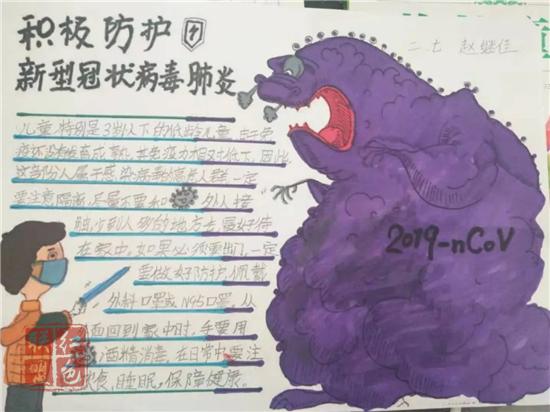 积极防护
新型冠状病毒肺炎
二.七 赵继佳
儿童,特别是3岁以下的低龄儿童,由于免
疫还没有发育成熟,其免疫力相对低下,因此
这部分人属于感染病毒的高危人群一定
要注意隔离,尽量不要和外人接
触,少到人多的地方去,最好待
在家中。如果必须要出门,一定
要做好防护,佩戴
外科口罩或N95口罩。从
外面回到家中时,手要用
酒精消毒,在日常中要注
饮食,睡眠,保障健康。
2019-nCoV